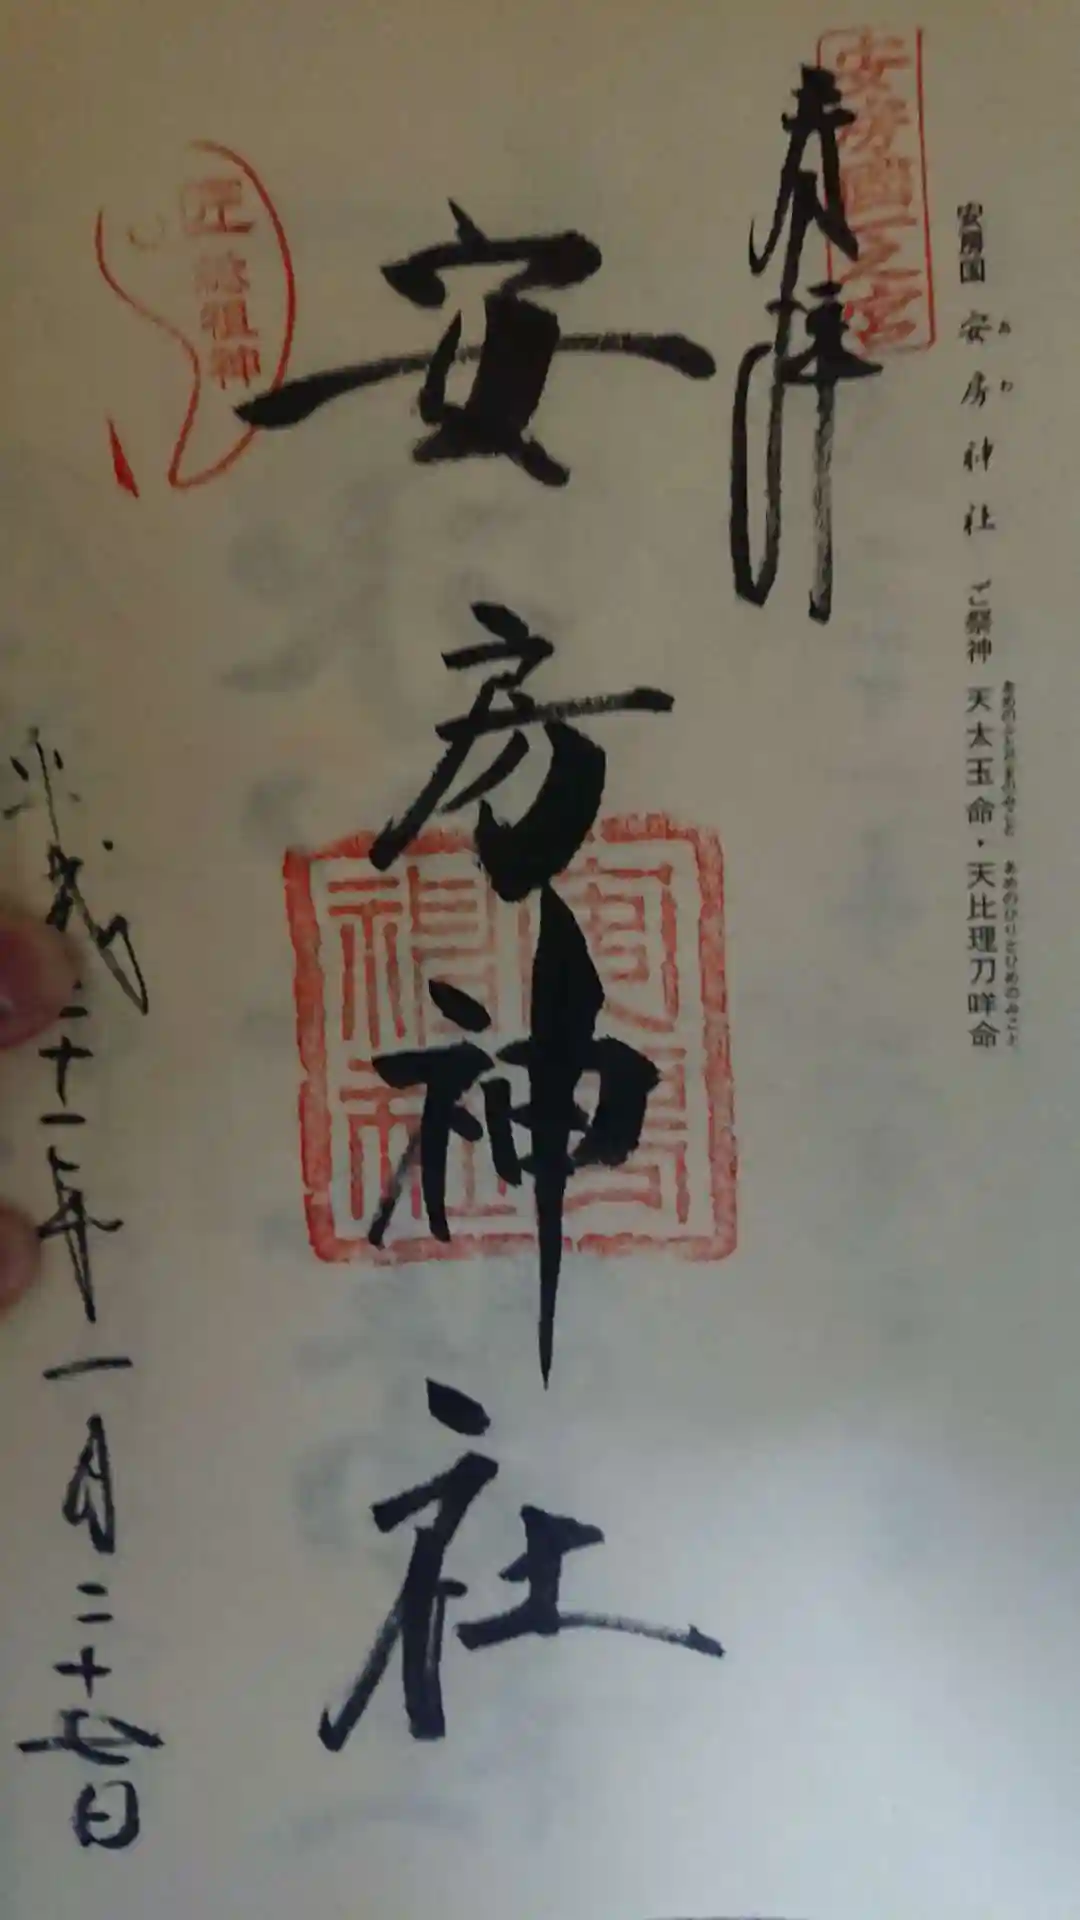 安房国 安房神社 ご祭神 天太玉命・天比理刀咩命
あわ
あめのふとだまのみこと あめのひりとひめのみこと
安房国一之宮
奉拝
安房神社
安房神社
匠総祖神
平成二十一年一月二十七日